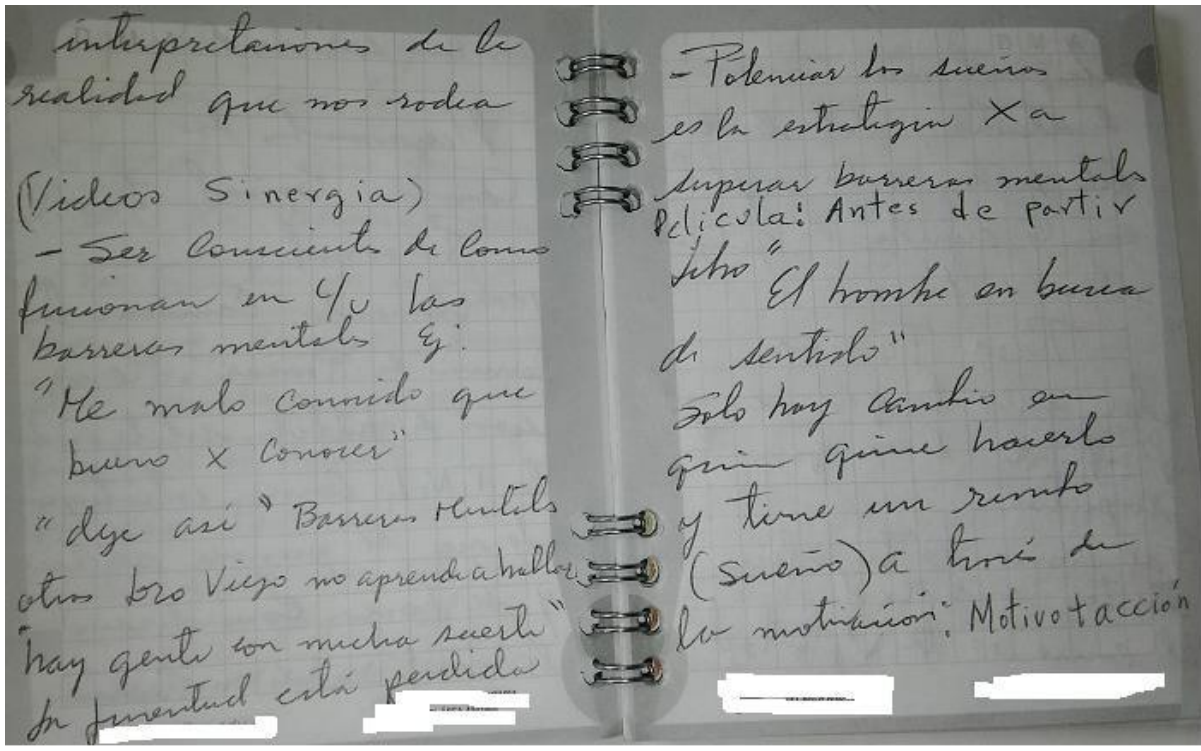 interpretaciones de la
realidad que nos rodea
(Videos Sinergia)
- Ser Consciente de Como
funcionan en c/u las
barreras mentales Ej:
"Me malo conocido que
bueno x conocer"
"deje así" Barreras Mentales
otros loro Viejo no aprende a hablar
"hay gente con mucha suerte"
la juventud está perdida
- Potenciar los sueños
es la estrategia Xa
superar barreras mentales
Pelicula: Antes de partir
libro "El hombre en busca
de sentido"
Solo hay cambio en
quien quiere hacerlo
y tiene un rumbo
(Sueño) a través de
la motivación: Motivo + acción